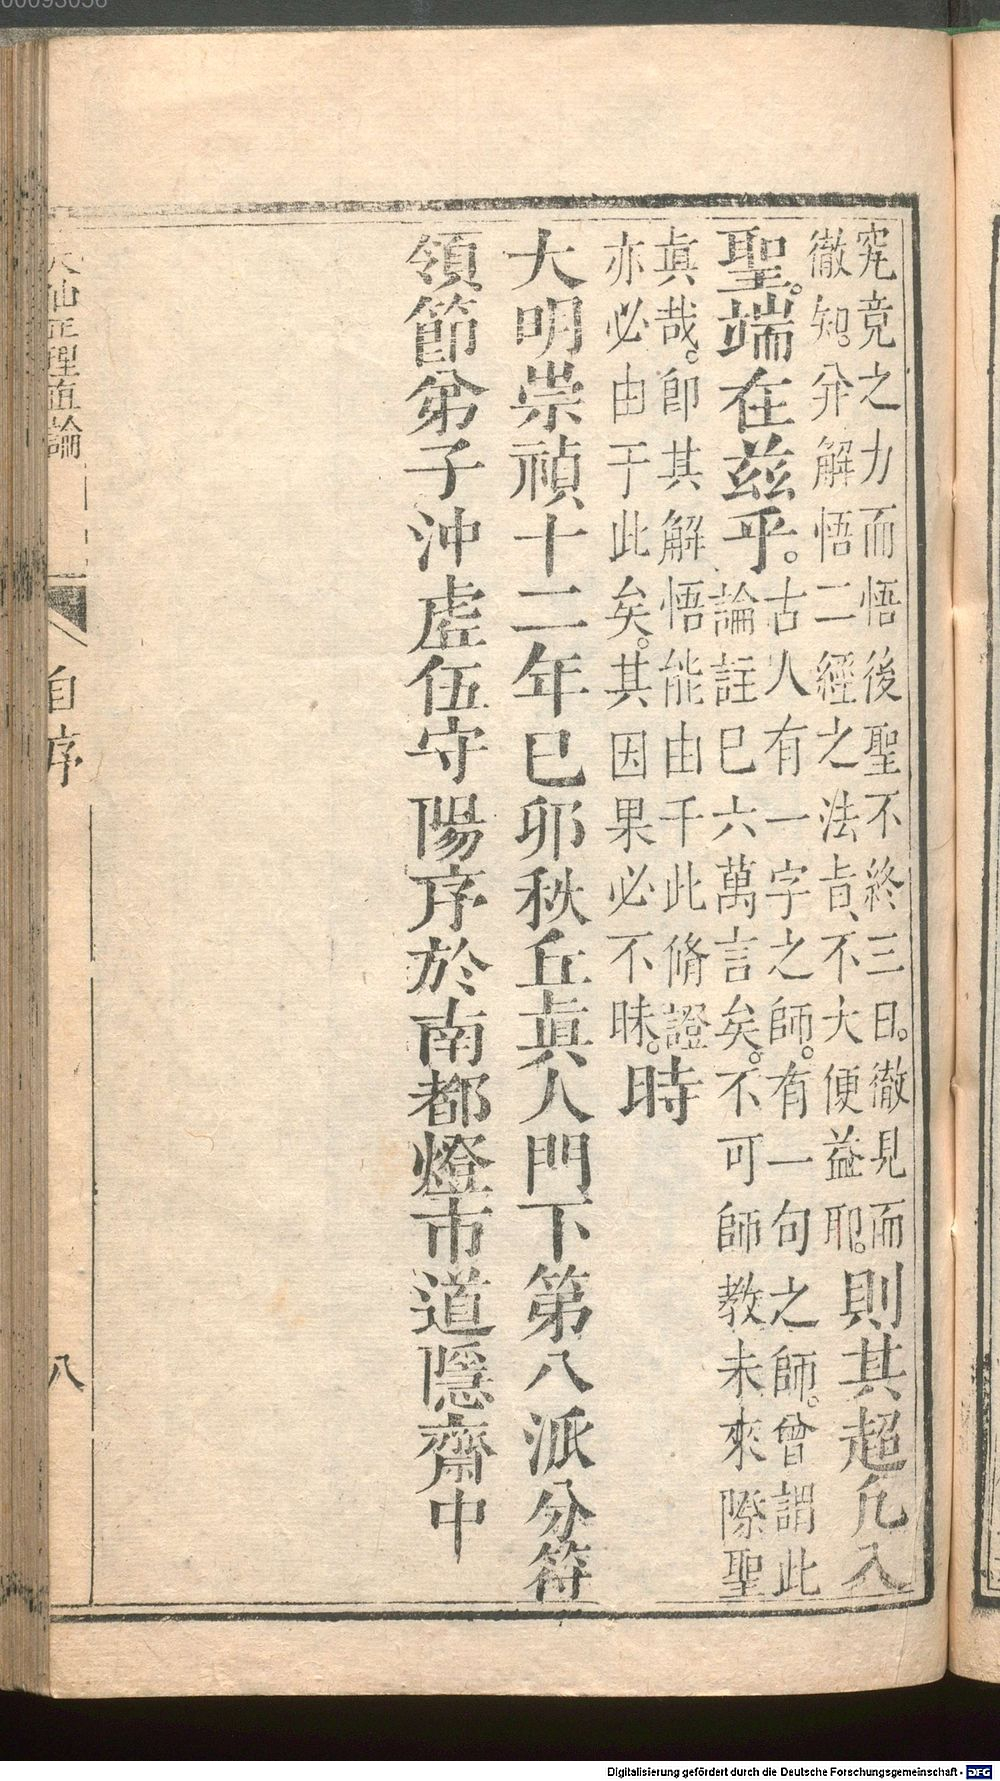 究竟之力而悟後聖不終三日。徹見而
徹知。分解悟二經之法㫖、不大便益耶。
則其超凡入
聖。端在兹乎。
古人有一字之師。有一句之師。曾謂此
論註巳六萬言矣。不可師教未來際聖
眞哉。卽其解悟能由于此脩證
亦必由于此矣。其因果必不昧。
時
大明崇禎十二年巳卯秋丘眞人門下第八派分符
領節弟子沖虛伍守陽序於南都燈市道隱齋中
大仙正理直論
自序
八
00093056
Digitalisierung gefördert durch die Deutsche Forschungsgemeinschaft - DFG